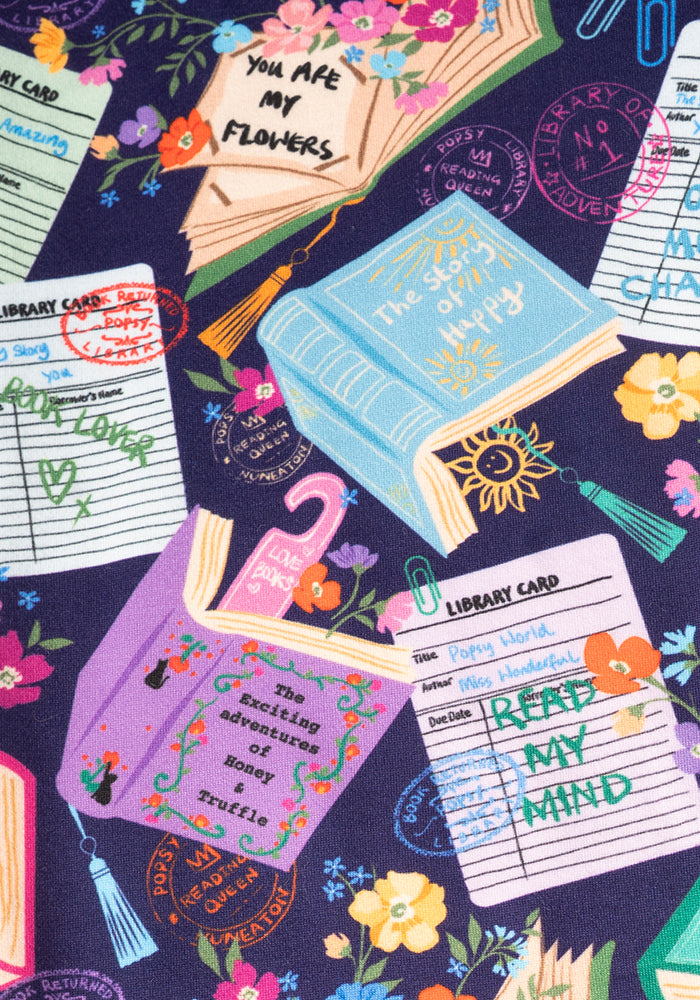 LIBRARY
YOU ARE
MY
FLOWERS
ARY CARD
Amazing
Name
POPSY LIBRARY
READING
QUEEN
NUN
LIBRARY OF
No
#1
ADVENTURE
Title
The
Author
Due Date
M
CHA
The Story
of
Happy
LIBRARY CARD
BOOK RETURNED
POPSY
LIBRARY
g Story
You
Borrower's Name
BOOK LOVER
x
POPSY
READING
QUEEN
NUNEATON
LOVE
BOOKS
The
Exciting
adventures
of
Honey
&
Truffle
LIBRARY CARD
Title Popsy World
Author Miss Wonderful
Due Date
READ
MY
MIND
BOOK RETURNED
POPSY
LIBRARY
POPSY
READING
QUEEN
NUNEATON
BOOK RETURNED